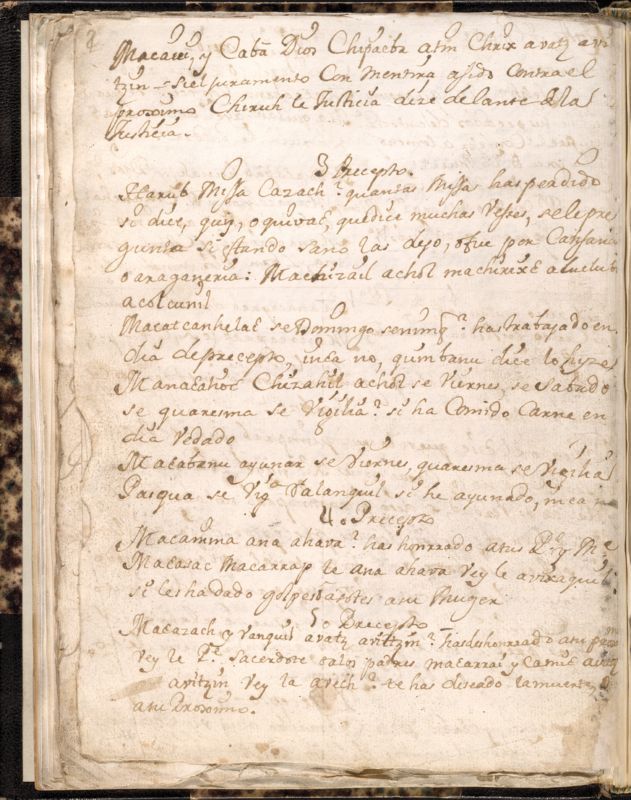 y Caba Dios Chipaeba atin Chrix avatz avi
tzin si el juramento Con mentira a sido Contra el
proximo Chiruch le Justicia dize delante de la
Justicia.
3 Precepto.
Harub Missa Cazach? quantas Missas has perdido
si dice, quiy, o quivaE, que dice muchas Vesses, se le pre
gunta si estando sano las dejo, o fue por Cansancio
o araganeria: achol
acolcunil
Macatcanhelac se Domingo senimq? has trabajado en
dia de precepto, inca no, quinbanu dice lo hize
Chizahil achol se Viernes, se Sabado
se quaresma se Vigilia? si ha Comido Carne en
dia Vedado
Macabanu ayunar se Viernes, quaresma se Vigilia
Pasqua se Vigª si he ayunado, inca
4. Precepto
Macamma ana ahava? has honrrado a tus P.e y M.e
Macasac Macarrap le ana ahava Vey le
si les ha dado golpes a tu Muger
5o Precepto
Macazach y Vanquil avatz avitzin? has deshonrrado a tu
Vey le P.e Sacerdote a los padres macarrai y Camic
avitzin Vey la avech? te has diseado la muerte
a tu Proximo.